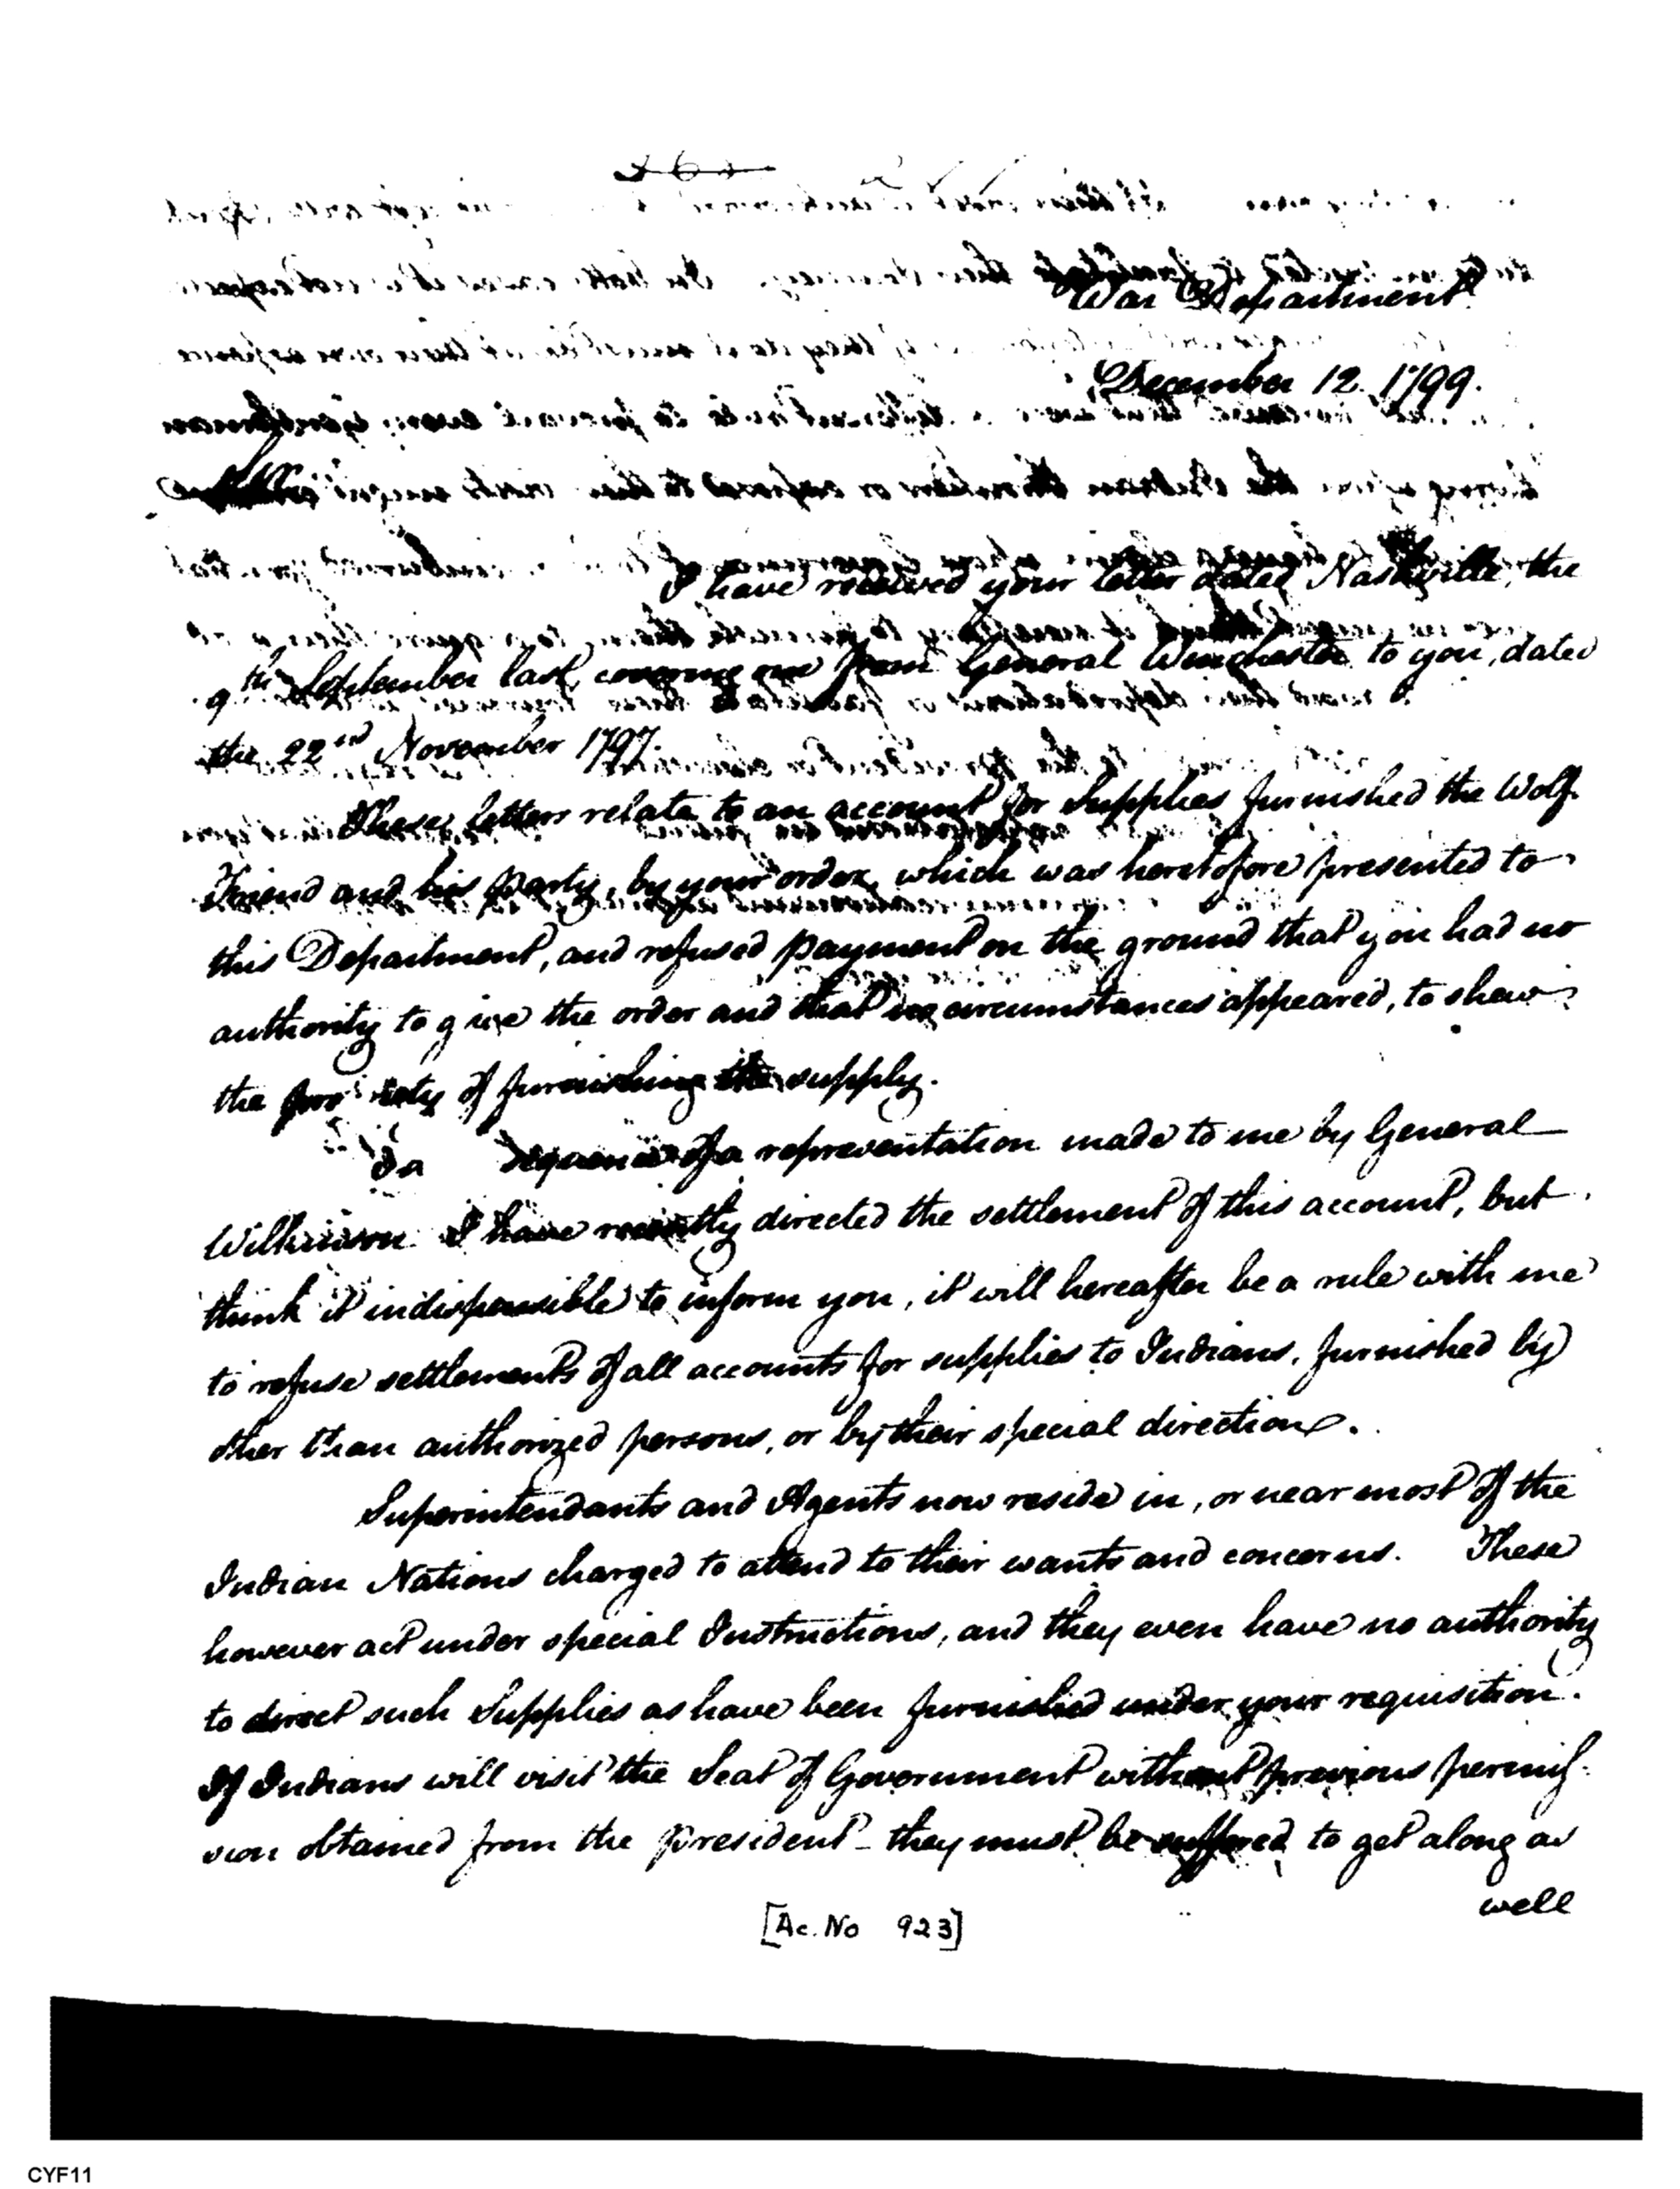 War Department
December 12. 1799.
Sir
I have received your letter dated Nashville, the
9th September last, covering one from General Winchester to you, dated
the 22nd November 1797.
These letters relate to an account for Supplies furnished the Wolf
Friend and his party, by your order, which was heretofore presented to
this Department, and refused payment on the ground that you had no
authority to give the order and that no circumstances appeared, to shew
the of furnishing the supply.
of a representation made to me by General
Wilkinson I have recently directed the settlement of this account, but
think it indispensible to inform you, it will hereafter be a rule with me
to refuse settlements of all accounts for supplies to Indians, furnished by
other than authorized persons, or by their special direction.
Superintendants and Agents now reside in, or near most of the
Indian Nations charged to attend to their wants and concerns. These
however act under special Instructions, and they even have no authority
to direct such Supplies as have been furnished under your requisition.
If Indians will visit the Seat of Government without previous permis-
sion obtained from the president - they must be suffered to get along as
well
[Ac. No 923]
CYF11